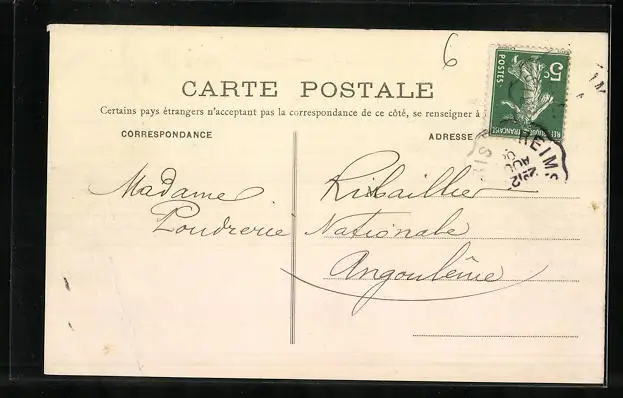 6
CARTE POSTALE
Certains pays étrangers n'acceptant pas la correspondance de ce côté, se renseigner à
CORRESPONDANCE
ADRESSE
Madame Ribaillier
Poudrerie Nationale
Angoulême
5c
POSTES
REPUBLIQUE FRANÇAISE
REIMS